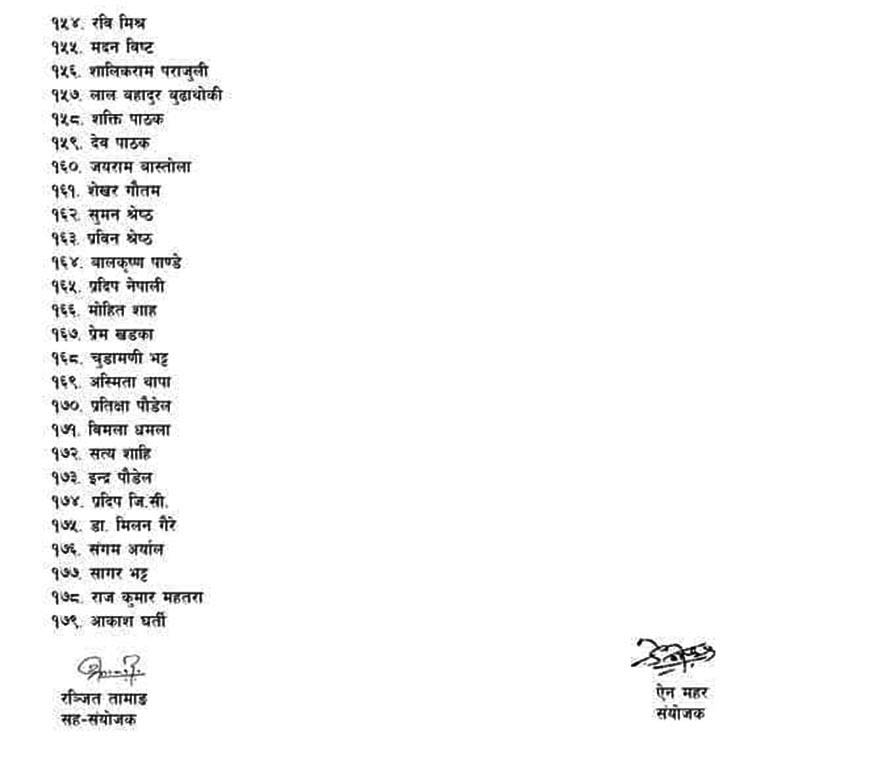 १५४. रवि मिश्र
१५५. मदन विष्ट
१५६. शालिकराम पराजुली
१५७. लाल बहादुर बुढाथोकी
१५८. शक्ति पाठक
१५९. देव पाठक
१६०. जयराम बास्तोला
१६१. शेखर गौतम
१६२. सुमन श्रेष्ठ
१६३. प्रविन श्रेष्ठ
१६४. बालकृष्ण पाण्डे
१६५. प्रदिप नेपाली
१६६. मोहित शाह
१६७. प्रेम खडका
१६८. चुडामणी भट्ट
१६९. अस्मिता थापा
१७०. प्रतिक्षा पौडेल
१७१. बिमला धमला
१७२. सत्य शाहि
१७३. इन्द्र पौडेल
१७४. प्रदिप जि.सी.
१७५. डा. मिलन गैरे
१७६. संगम अर्याल
१७७. सागर भट्ट
१७८. राज कुमार महतरा
१७९. आकाश घर्ती
रञ्जित तामाङ
सह-संयोजक
ऐन महर
संयोजक